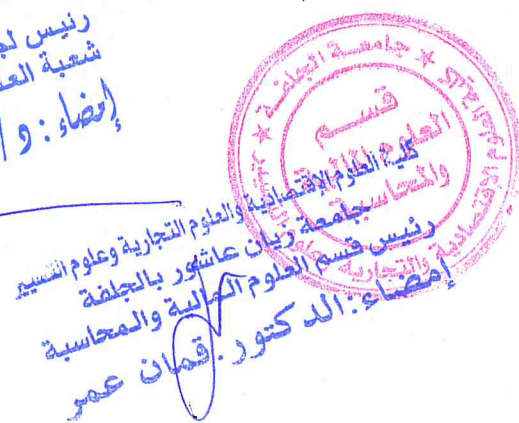 رئيس لج
شعبة العلـ
إمضاء : د ا
جامعـــة الجلفـــة
قســـم
العلوم المالية
والمحاسبة
كلية العلوم الإقتصادية والعلوم التجارية وعلوم التسيير
جامعة زيان عاشور بالجلفة
رئيس قسم العلوم المالية والمحاسبة
إمضاء: الدكتور. قمان عمر